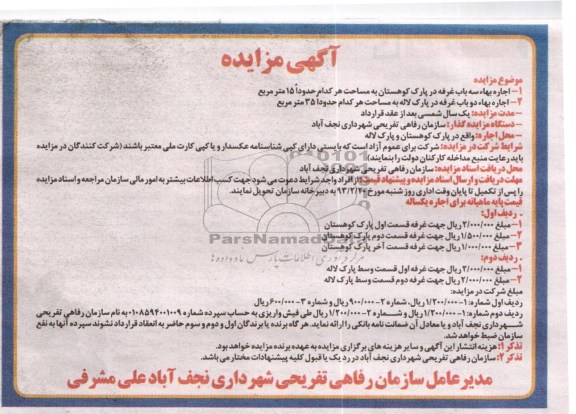 آگهی مزایده
موضوع مزایده
۱- اجاره بهاء سه باب غرفه در پارک کوهستان به مساحت هر کدام حدوداً ۱۵ متر مربع
۲- اجاره بهاء دو باب غرفه در پارک لاله به مساحت هر کدام حدوداً ۳۵ متر مربع
- مدت مزایده: یک سال شمسی بعد از عقد قرارداد
- دستگاه مزایده گذار: سازمان رفاهی تفریحی شهرداری نجف آباد
- محل اجاره: واقع در پارک کوهستان و پارک لاله
شرایط شرکت در مزایده: شرکت برای عموم آزاد است که بایستی دارای کپی شناسنامه عکسدار و یا کپی کارت ملی معتبر باشند (شرکت کنندگان در مزایده
باید رعایت منبع مداخله کارکنان دولت را بنمایند)
محل دریافت اسناد مزایده: سازمان رفاهی تفریحی شهرداری نجف آباد
مهلت دریافت و ارسال اسناد مزایده و پیشنهاد قیمت: از افراد واجد شرایط دعوت می شود جهت کسب اطلاعات بیشتر به امور مالی سازمان مراجعه و اسناد مزایده
را پس از تکمیل تا پایان وقت اداری روز شنبه مورخ ۹۳/۲/۲۰ به دبیرخانه سازمان تحویل نمایند.
قیمت پایه ماهیانه برای اجاره یکساله
. ردیف اول:
۱- مبلغ ۲/۰۰۰/۰۰۰ ریال جهت غرفه قسمت اول پارک کوهستان
۲- مبلغ ۱/۵۰۰/۰۰۰ ریال جهت غرفه قسمت دوم پارک کوهستان
۳- مبلغ ۱/۰۰۰/۰۰۰ ریال جهت غرفه قسمت آخر پارک کوهستان
. ردیف دوم:
۱- مبلغ ۲/۰۰۰/۰۰۰ ریال جهت غرفه اول قسمت وسط پارک لاله
۲- مبلغ ۲/۰۰۰/۰۰۰ ریال جهت غرفه دوم قسمت وسط پارک لاله
مبلغ شرکت در مزایده:
ردیف اول شماره: ۱- ۱/۲۰۰/۰۰۰ ریال، شماره ۲- ۹۰۰/۰۰۰ ریال و شماره ۳- ۶۰۰/۰۰۰ ریال
ردیف دوم شماره: ۱- ۱/۲۰۰/۰۰۰ ریال و شماره ۲- ۱/۲۰۰/۰۰۰ ریال طی فیش واریزی به حساب سپرده شماره ۰۱۰۸۵۹۴۰۰۱۰۰۹ به نام سازمان رفاهی تفریحی
شهرداری نجف آباد و یا معادل آن ضمانت نامه بانکی را ارائه نماید. هر گاه برنده یا برندگان اول و دوم و سوم حاضر به انعقاد قرارداد نشوند سپرده آنها به نفع
سازمان ضبط خواهد شد.
تذکر ۱: هزینه انتشار این آگهی و سایر هزینه های برگزاری مزایده به عهده برنده مزایده خواهد بود.
تذکر ۲: سازمان رفاهی تفریحی شهرداری نجف آباد در رد یک یا قبول کلیه پیشنهادات مختار می باشد.
مدیر عامل سازمان رفاهی تفریحی شهرداری نجف آباد علی مشرفی
ParsNamadData